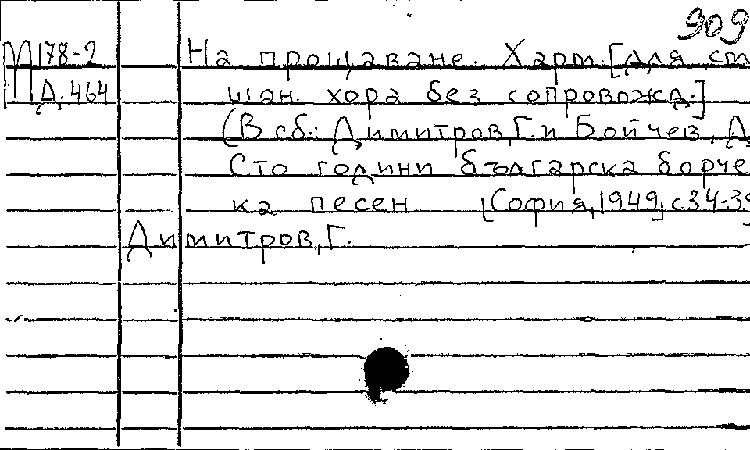 909
М178-2 На прощаване. Харм. [для см
Д.464 шан. хора без сопровожд.]
(В сб.: Димитров, Г. и Бойчев, Д
Сто години българска борче
ка песен [София, 1949, с.34-39
Димитров, Г.